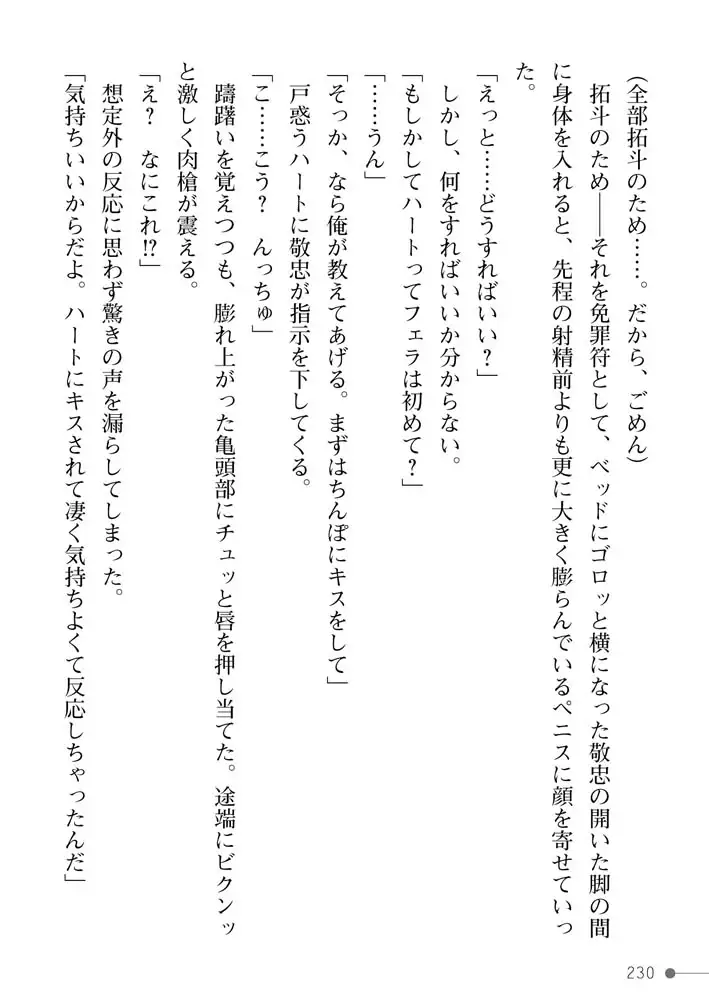 （全部拓斗のため……。だから、ごめん）
　拓斗のため――それを免罪符として、ベッドにゴロッと横になった敬忠の開いた脚の間
に身体を入れると、先程の射精前よりも更に大きく膨らんでいるペニスに顔を寄せていっ
た。
「えっと……どうすればいい？」
　しかし、何をすればいいか分からない。
「もしかしてハートってフェラは初めて？」
「……うん」
「そっか、なら俺が教えてあげる。まずはちんぽにキスをして」
　戸惑うハートに敬忠が指示を下してくる。
「こ……こう？　んっちゅ」
　躊躇いを覚えつつも、膨れ上がった亀頭部にチュッと唇を押し当てた。途端にビクンッ
と激しく肉槍が震える。
「え？　なにこれ!?」
　想定外の反応に思わず驚きの声を漏らしてしまった。
「気持ちいいからだよ。ハートにキスされて凄く気持ちよくて反応しちゃったんだ」
230